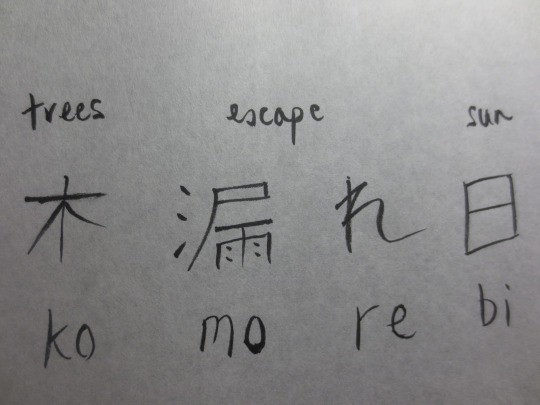 trees escape sun
木漏れ日
ko mo re bi